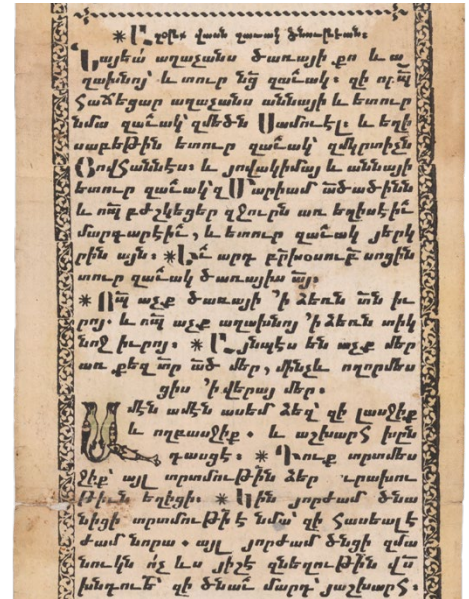 ✴ Աղօթք վասն զաւակ ծնութեան։
Նայեա՛ աղաչանս ծառայի քո և ա
ղախնոյ՝ և տուր նց̃ զաւակ։ զի որպ̃
Հաճեցար աղաչանս աննայի և ետուր
նմա զաւակ՝ զմեծն Սամուէլ։ և եղի
սաբեթին ետուր զաւակ՝ զմկրտիչն
Յովհաննէս։ և յովակիմայ և աննայի
ետուր զաւակ՝ զՄարիամ ած̃ածինն
և ոպ̃ բժշկեցեր զջուրն առ եղիսէիւ̃
մարգարէիւ̃, և ետուր զաւակ յերկ
րին այն։ ✴
տուր զաւակ ծառայիս այ̃։
✴ Ոպ̃ աչք ծառայի ՚ի ձեռն տն̃ իւ
րոյ. և ոպ̃ աչք աղախնոյ ՚ի ձեռն տիկ
նոջ իւրոյ։ ✴ Այնպէս են աչք մեր
առ քեզ տր̃ ած̃ մեր, մինչև ողորմես
ցիս ՚ի վերայ մեր։
Ամէն ամէն ասեմ ձեզ՝ զի լասջիք
և ողբասջիք. և աշխարհ խրն
դասցէ։ ✴ Դուք տրտմես
ջիք՝ այլ տրտմութիւն ձեր ՚ւրախու
թիւն եղիցի։ ✴ Կին յորժամ ծնա
նիցի տրտմութիւն է նմա՝ զի հասեալ է
ժամ նորա. այլ յորժամ ծնցի զմա
նուկն ոչ ևս յիշէ զնեղութիւն վս̃
խնդութե՝ զի ծնաւ մարդ՝ յաշխարհ։